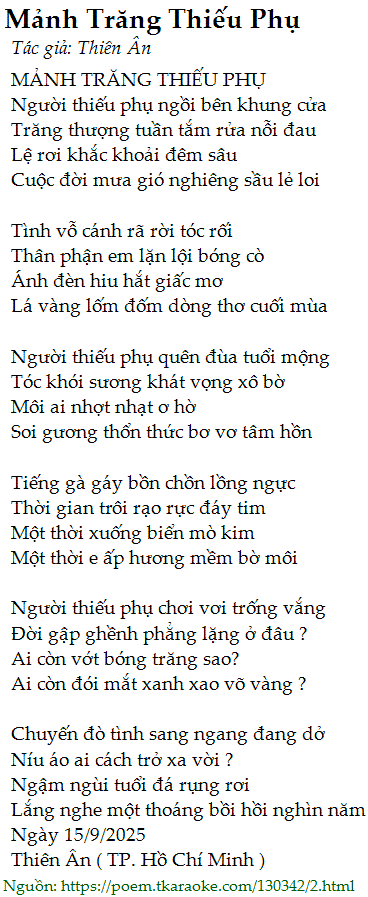 Mảnh Trăng Thiếu Phụ
Tác giả: Thiên Ân
MẢNH TRĂNG THIẾU PHỤ
Người thiếu phụ ngồi bên khung cửa
Trăng thượng tuần tắm rửa nỗi đau
Lệ rơi khắc khoải đêm sâu
Cuộc đời mưa gió nghiêng sầu lẻ loi

Tình vỗ cánh rã rời tóc rối
Thân phận em lặn lội bóng cò
Ánh đèn hiu hắt giấc mơ
Lá vàng lốm đốm dòng thơ cuối mùa

Người thiếu phụ quên đùa tuổi mộng
Tóc khói sương khát vọng xô bờ
Môi ai nhợt nhạt ơ hờ
Soi gương thổn thức bơ vơ tâm hồn

Tiếng gà gáy bồn chồn lồng ngực
Thời gian trôi rạo rực đáy tim
Một thời xuống biển mò kim
Một thời e ấp hương mềm bờ môi

Người thiếu phụ chơi vơi trống vắng
Đời gập ghềnh phẳng lặng ở đâu ?
Ai còn vớt bóng trăng sao?
Ai còn đói mắt xanh xao võ vàng ?

Chuyến đò tình sang ngang đang dở
Níu áo ai cách trở xa vời ?
Ngậm ngùi tuổi đá rụng rơi
Lắng nghe một thoáng bồi hồi nghìn năm
Ngày 15/9/2025
Thiên Ân ( TP. Hồ Chí Minh )
Nguồn: https://poem.tkaraoke.com/130342/2.html